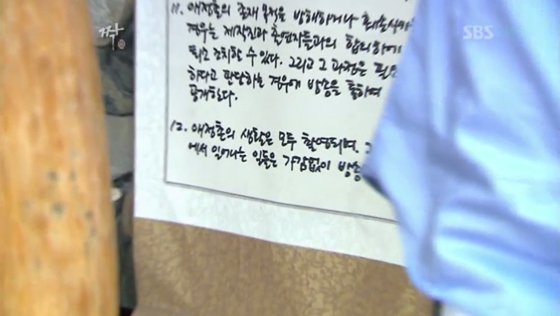 짝
SBS
11. 애정촌의 존재 목적을 방해하거나 훼손시
경우는 제작진과 출연자들과의 합의하에
퇴소 조치할 수 있다. 그리고 그 과정은 필요
하다고 판단하는 경우에 방송을 통하여
공개한다.
12. 애정촌의 생활은 모두 촬영되며, 그
에서 일어나는 일들은 가감없이 방송